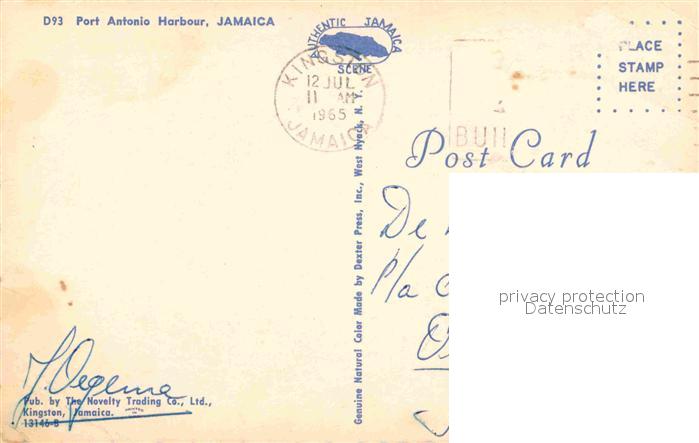 D93 Port Antonio Harbour, JAMAICA
AUTHENTIC JAMAICA
SCENE
KINGSTON
12 JUL
11 AM
1965
JAMAICA
PLACE
STAMP
HERE
Post Card
Genuine Natural Color Made by Dexter Press, Inc., West Nyack, N. Y.
De
P/a
privacy protection
Datenschutz
Pub. by The Novelty Trading Co., Ltd.,
Kingston, Jamaica.
13146-B